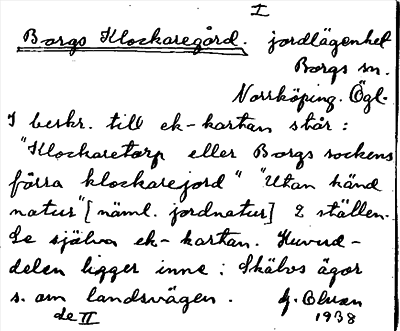 I
Borgs Klockaregård. jordlägenhet
Borgs sn.
Norrköping. Ögl.
I beskr. till ek-kartan står:
"Klockaretorp eller Borgs sockens
förra klockarejord" "Utan känd
natur" [näml. jordnatur] 2 ställen.
Se själva ek-kartan. Huvud-
delen ligger inne i Skälvs ägor
s. om landsvägen.
de II 1938